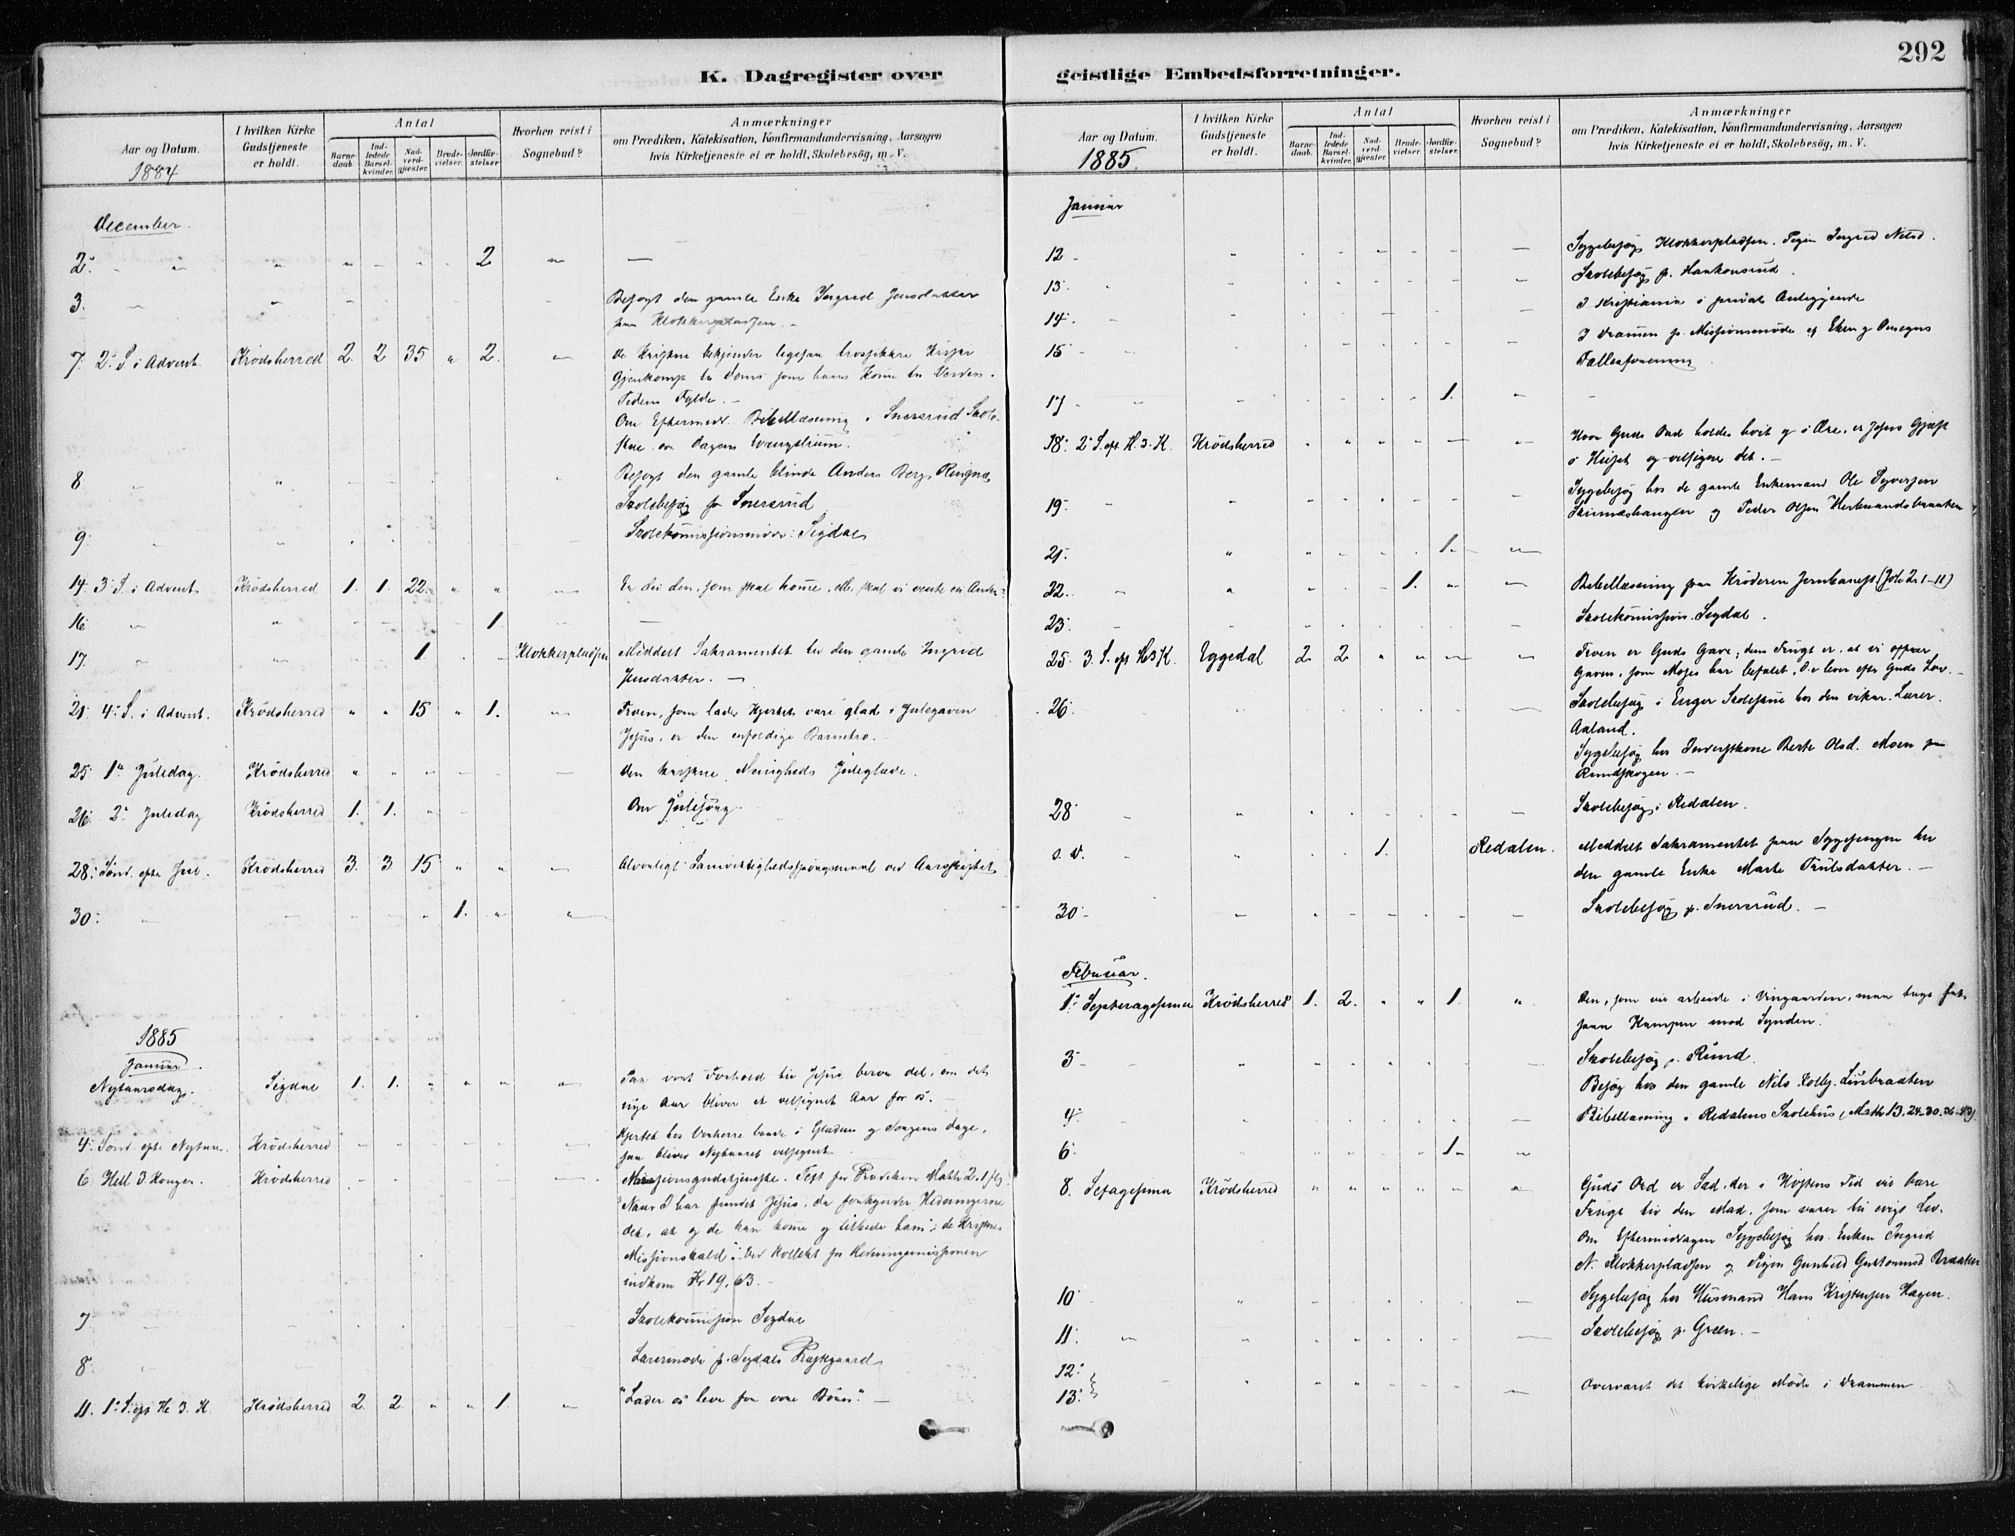 292
K. Dagregister over geistlige Embedsforretninger.
Aar og Datum.
1884
I hvilken Kirke Gudstjeneste er holdt.
Antal
Barnedaab.
Indledede Barselkvinder.
Nadverdgjester.
Brudevielser.
Jordfæstelser.
Hvorhen reist i Sognebud?
Anmærkninger
om Prædiken, Katekisation, Konfirmandundervisning, Aarsagen
hvis Kirketjeneste ei er holdt, Skolebesøg, m. V.
December.
2. " " " " 2 " —
3. Besøgt den gamle Enke Ingrid Jensdatter
paa Klokkerpladsen. —
7. 2. S. i Advent. Krødsherred 2. 2 35 " 2. De Kristne bekjender ligesaa
Gjenkomst til Doms som hans Komme til Verden i
Tidens Fylde. —
Om Eftermd. Bibellæsning i Snersrud Skole-
stue over Dagens Evangelium.
8 Besøgt den gamle blinde Anders Berg Ringnæs
Skolebesøg paa Snersrud
9. Skolekommissionsmøde i Sigdal
14. 3. S. i Advent. Krødsherred 1. 1. 22. " " Er du den, som skal komme, eller skal vi vente en Anden?
16 1. —
17. 1 Klokkerpladsen Meddelt Sakramentet til den gamle Ingrid
Jensdatter. —
21. 4. S. i Advent. Krødsherred " " 15 " 1. Troen, som lader Hjertet være glad i Julegaven
Jesus, er den enfoldige Barnetro.
25. 1. Juledag. Krødsherred Den kristne Menigheds Juleglæde.
26. 2. Juledag Krødsherred 1. 1. Om Julesang.
28. Sønd. efter Jul. Krødsherred 3. 3 15 " " Alvorligt Samvittighedsspørgsmaal ved Aarsskiftet
30. 1.
1885
Januar.
Nytaarsdag. Sigdal 1. 1. Paa vort Forhold til Jesus beror det, om det
nye Aar bliver et velsignet Aar for os. —
4. Sønd. efter Nytaar. Krødsherred Hjertet hos Vorherre baade i Glædens og Sorgens Dage,
saa bliver Nytaaret velsignet
6. Hell. 3 Konger. Krødsherred Missionsgudstjeneste. Text for Prædiken Matth. 2. 1 flg.
"Naar I har fundet Jesus, da forkynder Hedningerne
det, at og de kan komme og tilbede ham": de Kristnes
Missionskald. Ved Kollekt for Hedningemissionen
indkom Kr 19,63. —
7 Skolekommission Sigdal
8. Lærermøde p. Sigdals Prestgaard
11. 1. S. eft. H. 3. K. Krødsherred 2. 2. " " 1. " "Lader os leve for vore Børn." —
Aar og Datum.
1885.
I hvilken Kirke Gudstjeneste er holdt.
Antal
Barnedaab.
Indledede Barselkvinder.
Nadverdgjester.
Brudevielser.
Jordfæstelser.
Hvorhen reist i Sognebud?
Anmærkninger
om Prædiken, Katekisation, Konfirmandundervisning, Aarsagen
hvis Kirketjeneste ei er holdt, Skolebesøg, m. V.
Januar
12 Sygebesøg Klokkerpladsen. Pigen Ingrid Nilsd.
13. Skolebesøg p. Haakonsrud.
14. I Kristiania i privat Anliggende
15 I Dramen p. Missionsmøde af Eker og Omegns
Fællesforening
17 1. "
18. 2. S. eft. H. 3. K. Krødsherred Hvor Guds Ord holdes høit og i Ære, er Jesus Gjæst
i Huset og velsigner det. —
19. Sygebesøg hos de gamle Enkemand Ole Syversen
og Peder Olsen Herbrandsbraaten
21. 1.
22. 1. Bibellæsning paa Krøderen Jernbanest. (Joh. 2. 1-11)
23. Skolekommission. Sigdal.
25. 3. S. eft. H3K. Eggedal 2. 2. Troen er Guds Gave; dens Frugt er, at vi offrer
Gaven, som Moses har befalet, d. e. lever efter Guds Lov. —
26. Skolebesøg i Enger Skolestue hos den vikar. Lærer
Aaland.
Sygebesøg hos Inderstkone Berte Olsd. Moen paa
Rundskogen. —
28 Skolebesøg i Redalen.
s. D. 1. Redalen. Meddelt Sakramentet paa Sygesengen til
den gamle Enke Marte Trulsdatter. —
30 Skolebesøg p. Snersrud. —
Februar.
1. Septuagesima Krødsherred 1. 2. " " 1. " Den, som vil arbeide i Vingaarden, maa tage fat
paa Kampen mod Synden.
3 Skolebesøg p. Rund.
Besøg hos den gamle Nils Kolbj. Lusbraaten
4. Bibellæsning i Redalens Skolehus (Matth. 13. 24-30. 36-43).
6. 1.
8. Sexagesima Krødsherred Guds Ord er Sæd, der i Høstens Tid vil bære
Frugt til den Mad, som varer til evigt Liv.
Om Eftermiddagen Sygebesøg hos Enken Ingrid
N. Klokkerpladsen og Pigen Gunhild Guttormsd Braaten
10 Sygebesøg hos Husmand Hans Kristensen Hagen.
11. Skolebesøg p. Green. —
12.
13. Overværet det kirkelige Møde i Drammen